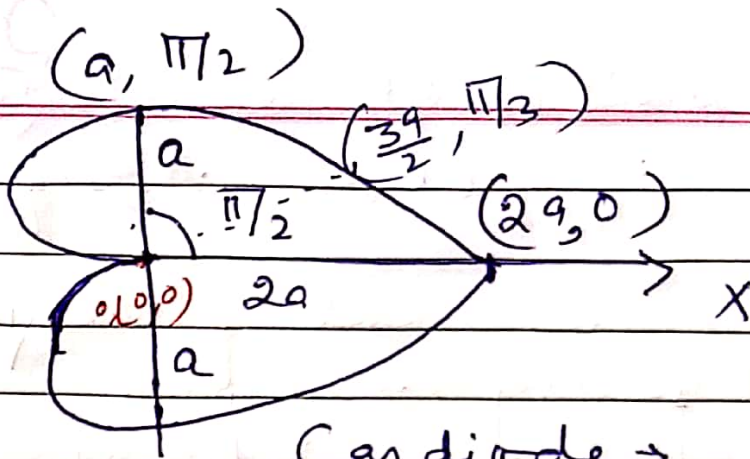 (a, π/2)
(3a/2, π/3)
a
π/2
(2a, 0)
O(0,0)
2a
X
a
Cardiode →